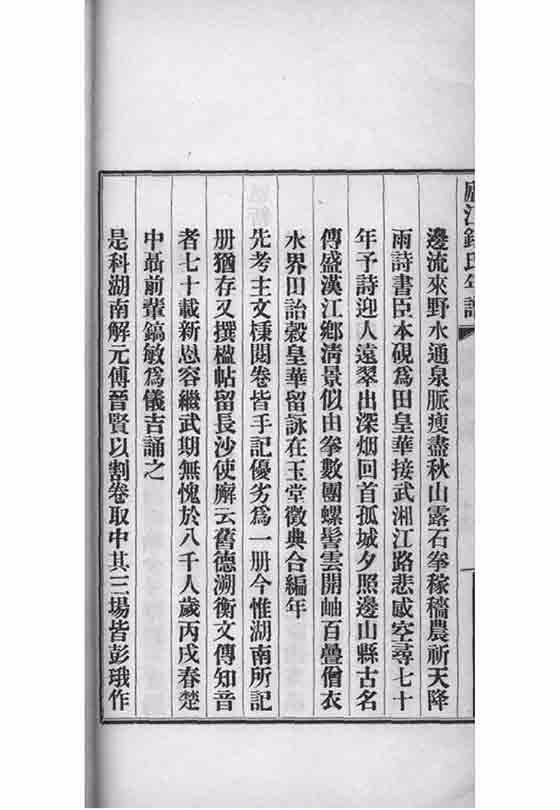 廬江錢氏年譜
邊流來野水通泉脈瘦盡秋山露石拳稼穡農祈天降
雨詩書臣本硯爲田皇華接武湘江路悲感空尋七十
年予詩迎人遠翠出深烟回首孤城夕照邊山縣古名
傳盛漢江鄉淸景似由拳數團螺髻雲開岫百疊僧衣
水界田詒穀皇華留詠在玉堂徵典合編年
先考主文棅閱卷皆手記優劣爲一册今惟湖南所記
册猶存又撰楹帖留長沙使廨云舊德溯衡文傳知音
者七十載新恩容繼武期無愧於八千人歲丙戌春楚
中聶前輩鎬敏爲儀吉誦之
是科湖南解元傅晉賢以割卷取中其三場皆彭珴作